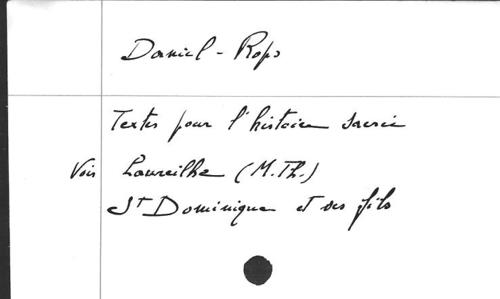 Daniel-Rops
Textes pour l'histoire sacrée
Voir Laureilhe (M.Th.)
St Dominique et ses fils